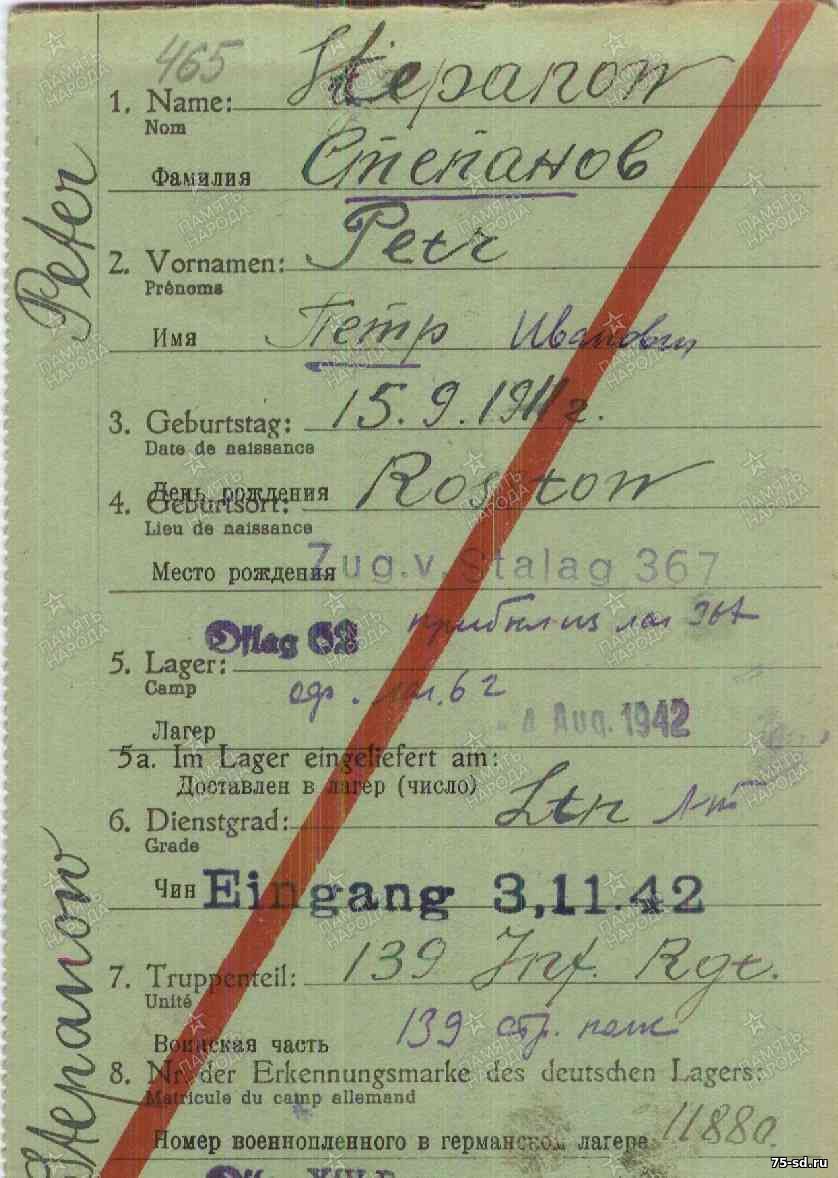 465
1. Name: Stepanow
Nom
Фамилия Степанов
Peter
2. Vornamen: Petr
Prénoms
Имя Петр Иванович
3. Geburtstag: 15.9.1911 г.
Date de naissance
День рождения
4. Geburtsort: Rostow
Lieu de naissance
Место рождения
Zug.v. Stalag 367
Oflag 62 прибыл из лаг 367
5. Lager:
Camp
оф. лаг. 62
Лагер
Aug. 1942
5a. Im Lager eingeliefert am:
Доставлен в лагер (число)
6. Dienstgrad: Ltn Л-т
Grade
Чин Eingang 3,11.42
Stepanow
7. Truppenteil: 139 Inf. Rgt.
Unité
Воинская часть 139 стр. полк
8. Nr. der Erkennungsmarke des deutschen Lagers:
Matricule du camp allemand
Номер военнопленного в германском лагере 11880.
75-sd.ru
ПАМЯТЬ НАРОДА